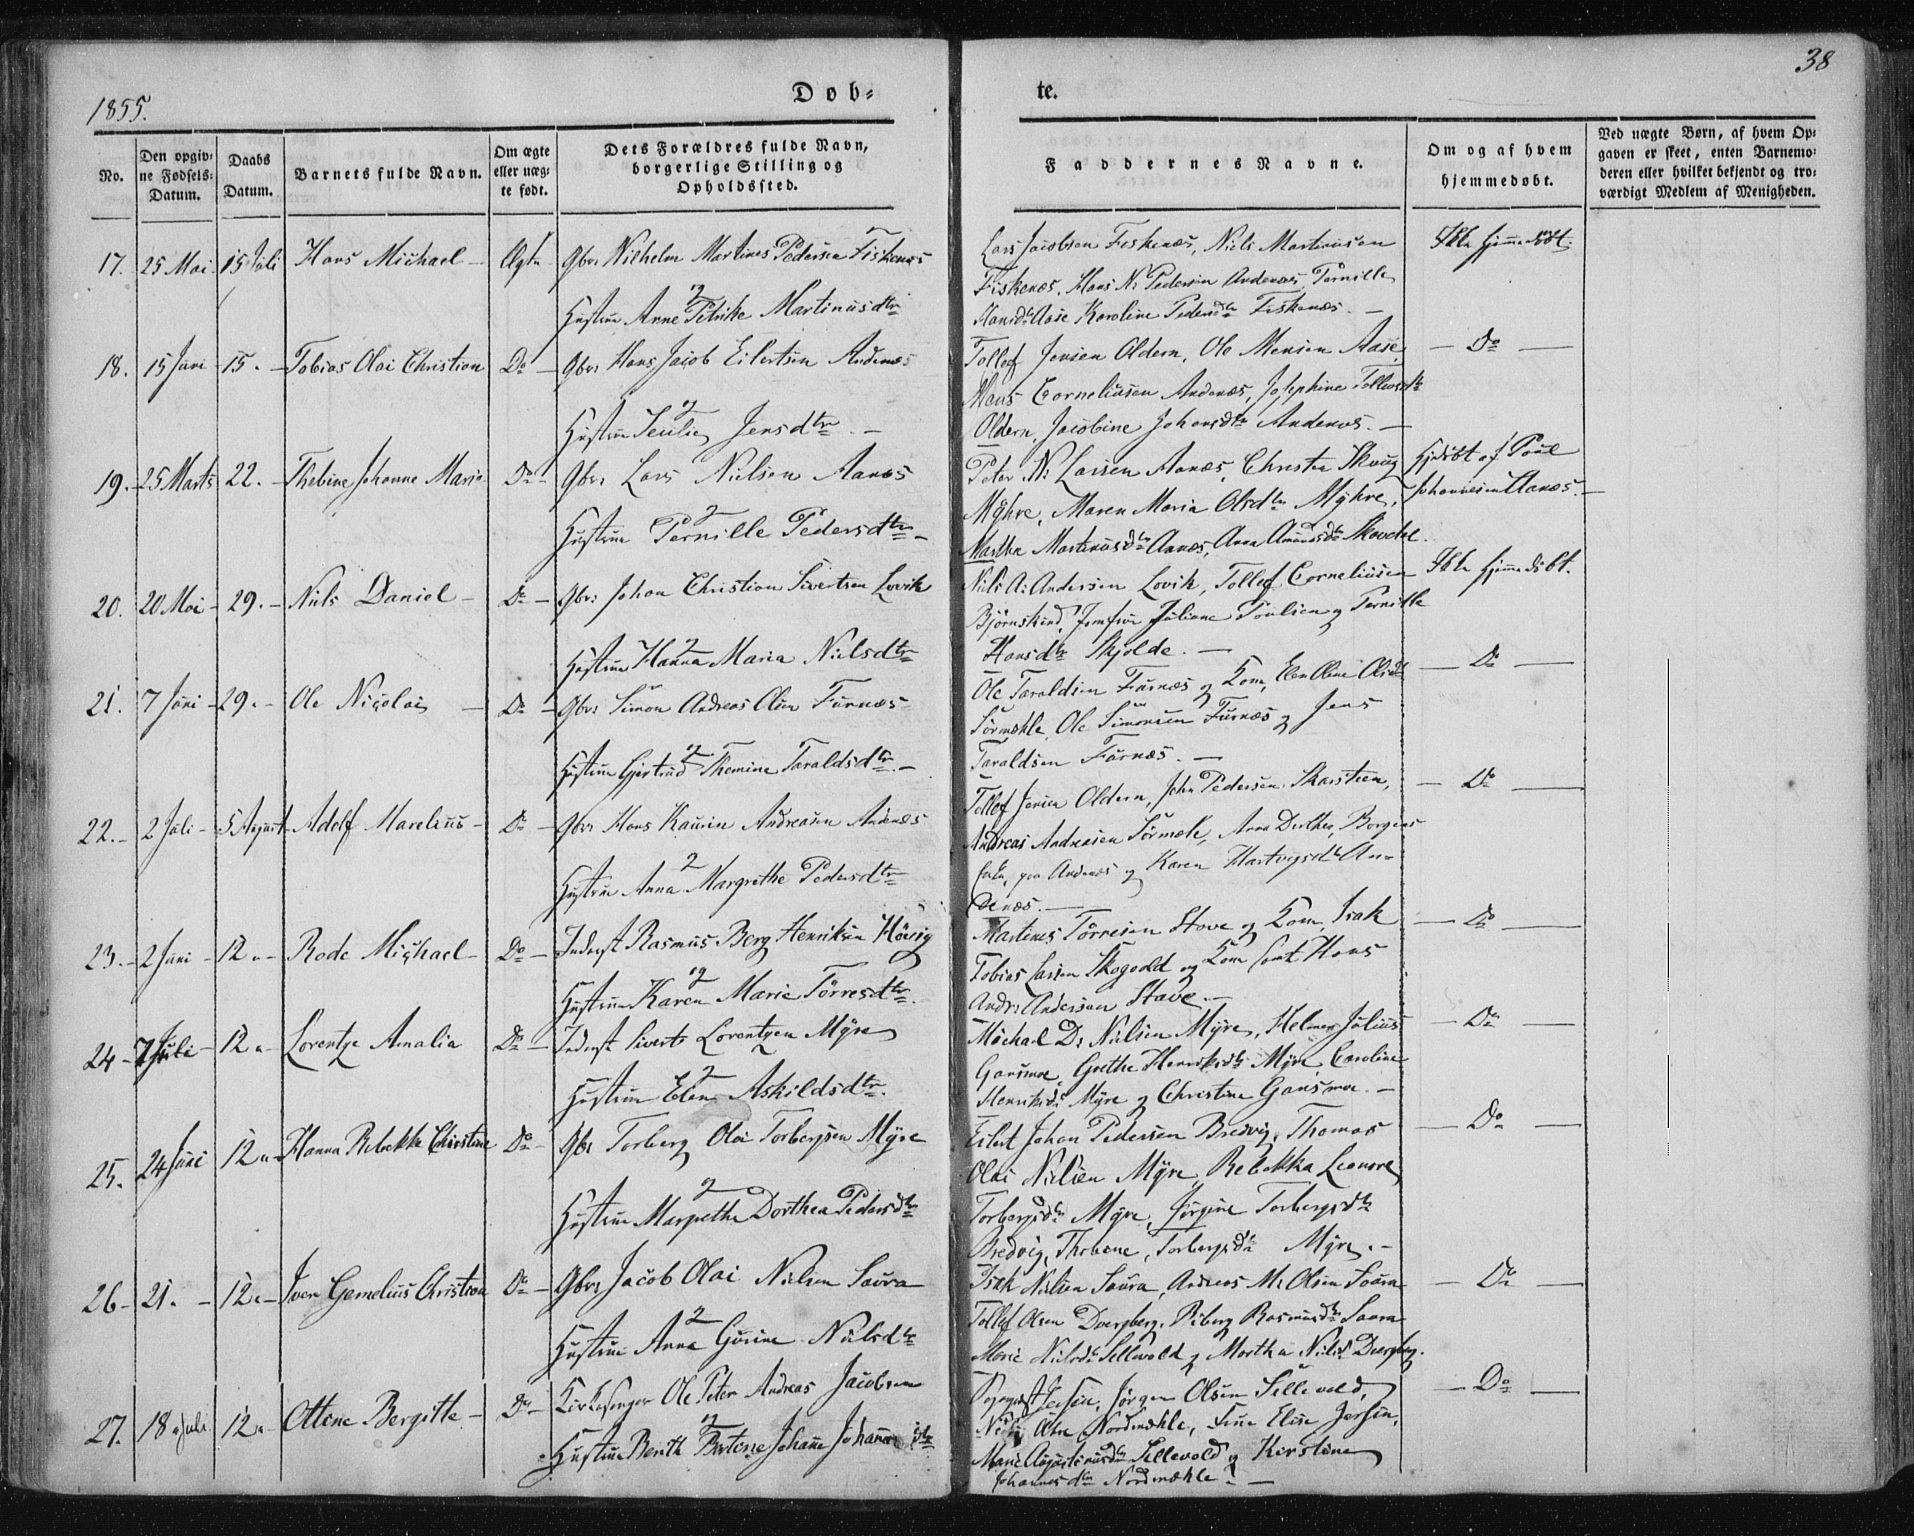 1855.
Døb-
te.
38
No.
Den opgiv-
ne Fødsels-
Datum.
Daabs
Datum.
Barnets fulde Navn.
Om ægte
eller uæg-
te født.
Dets Forældres fulde Navn,
borgerlige Stilling og
Opholdssted.
Faddernes Navne.
Om og af hvem
hjemmedøbt.
Ved uægte Børn, af hvem Op-
gaven er skeet, enten Barnemo-
deren eller hvilket bekjendt og tro-
værdigt Medlem af Menigheden.
17. 25 Mai 15 Juli Hans Michael Ægte Gbr: Wilhelm Martines Pedersen Fiskenæs
og
Hustru Anne Petrike Martinusdtr
Lars Jacobsen Fiskenæs, Niels Martinusen
Fiskenæs, Hans N: Pedersen Andenæs, Pernille
Hansdtr Aase Karoline Pedersdtr Fiskenæs. —
Ikke hjemmedøbt.
18. 15 Juni 15. Tobias Olai Christian Do Gbr: Hans Jacob Eilertsen Andenæs
og
Hustru Jensdtr. —
Tollef Jensen Oldern, Ole Monsen Aase,
Mons Corneliusen Andenæs, Josephine Tollevsdtr
Oldern, Jacobine Johansdtr Andenæs. —
— Do —
19. 25 Marts 22. Thebine Johanne Maria Do Gbr: Lars Nielsen Aanæs
og
Hustru Pernille Pedersdtr —
Peter N: Larsen Aanæs, Christen Skoug
Myhre, Maren Maria Olsdtr Myhre,
Martha Martinusdtr Aanæs, Anna Amundsdtr
Hjdøbt af Poul
Johannesen Aanæs. —
20. 20 Mai 29. Niels Daniel Do Gbr: Johan Christian Sivertsen Lovik
og
Hustru Hanna Maria Nielsdtr
Niels A: Andersen Lovik, Tollef Corneliusen
Bjørnskind, Jomfru Juliane Poulsen og Pernille
Hansdtr Skjolde. —
Ikke hjemmedøbt.
21. 7 Juni 29. Ole Nicolai Do Gbr: Simon Andreas Olsen Furnæs
og
Hustru Gjertrud Themine Taraldsdtr. —
Ole Taraldsen Furnæs og Kone, Elen Olene Olsdtr
Sørmæhle, Ole Simonsen Furnæs og Jens
Taraldsen Furnæs. —
— Do —
22. 2 Juli 5 August Adolf Marelius Do Gbr: Hans Kaurin Andreasen Andenæs
og
Hustru Anna Margrethe Pedersdtr
Tollef Jensen Oldern, John Pedersen Skarsteen,
Andreas Andreasen Sørmæle, Anna Dorthea,
paa Andenæs og Karen Hartvigsdtr An-
denæs. —
— Do —
23. 2 Juni 12. Rode Michael Do Inderst Rasmus Berg Henriksen
og
Hustru Karen Marie Tørresdtr.
Martines Tørresen Stave og Kone, Isak
Tobias Larsen Skogvold og Kone samt Hans
Andr: Andersen Stave. —
— Do —
24 7 Juli 12 Lorentze Amalia Do Inderst Siverts Lorentzen Myre
og
Hustru Elen Askildsdtr.
Michael D: Nielsen Myre, Helmer Julius
Gansmoe, Grethe Henriksdtr Myre, Caroline
Henriksdtr Myre og Christine Gansmoe. —
— Do —
25. 24 Juni 12 Hanna Rebekka Christine Do Gbr Torberg Olai Torbergsen Myre
og
Hustru Margrethe Dorthea Pedersdtr
Eilert Johan Pedersen Bredvig, Thomas
Olai Nielsen Myre, Rebekka Leonore
Torbergsdtr Myre, Jørgine Torbergsdtr
Bredvig, Torbergsdtr Myre. —
— Do —
26 21. 12 Iver Cornelius Christian Do Gbr: Jacob Olai Nielsen Saura
og
Hustru Anna Gurine Nielsdtr
Isak Nielsen Saura, Andreas M: Olsen Saura
Tollef Olsen Dverberg, Riborg Rasmusdtr Saura
Marie Nielsdtr Sellevold og Martha Nielsd Dverberg.
— Do —
27. 18 Juli 12 Ottine Bergitte Do Kirkesanger Ole Peter Andreas Jacobsen
og
Hustru Berith Johanna Johannesdtr
Jørgen Olsen Sellevold,
Niels Olsen Nordmæhle,
Marie Augustinusdtr Sellevold og Kirstine
Johannesdtr Nordmæhle. —
— Do —